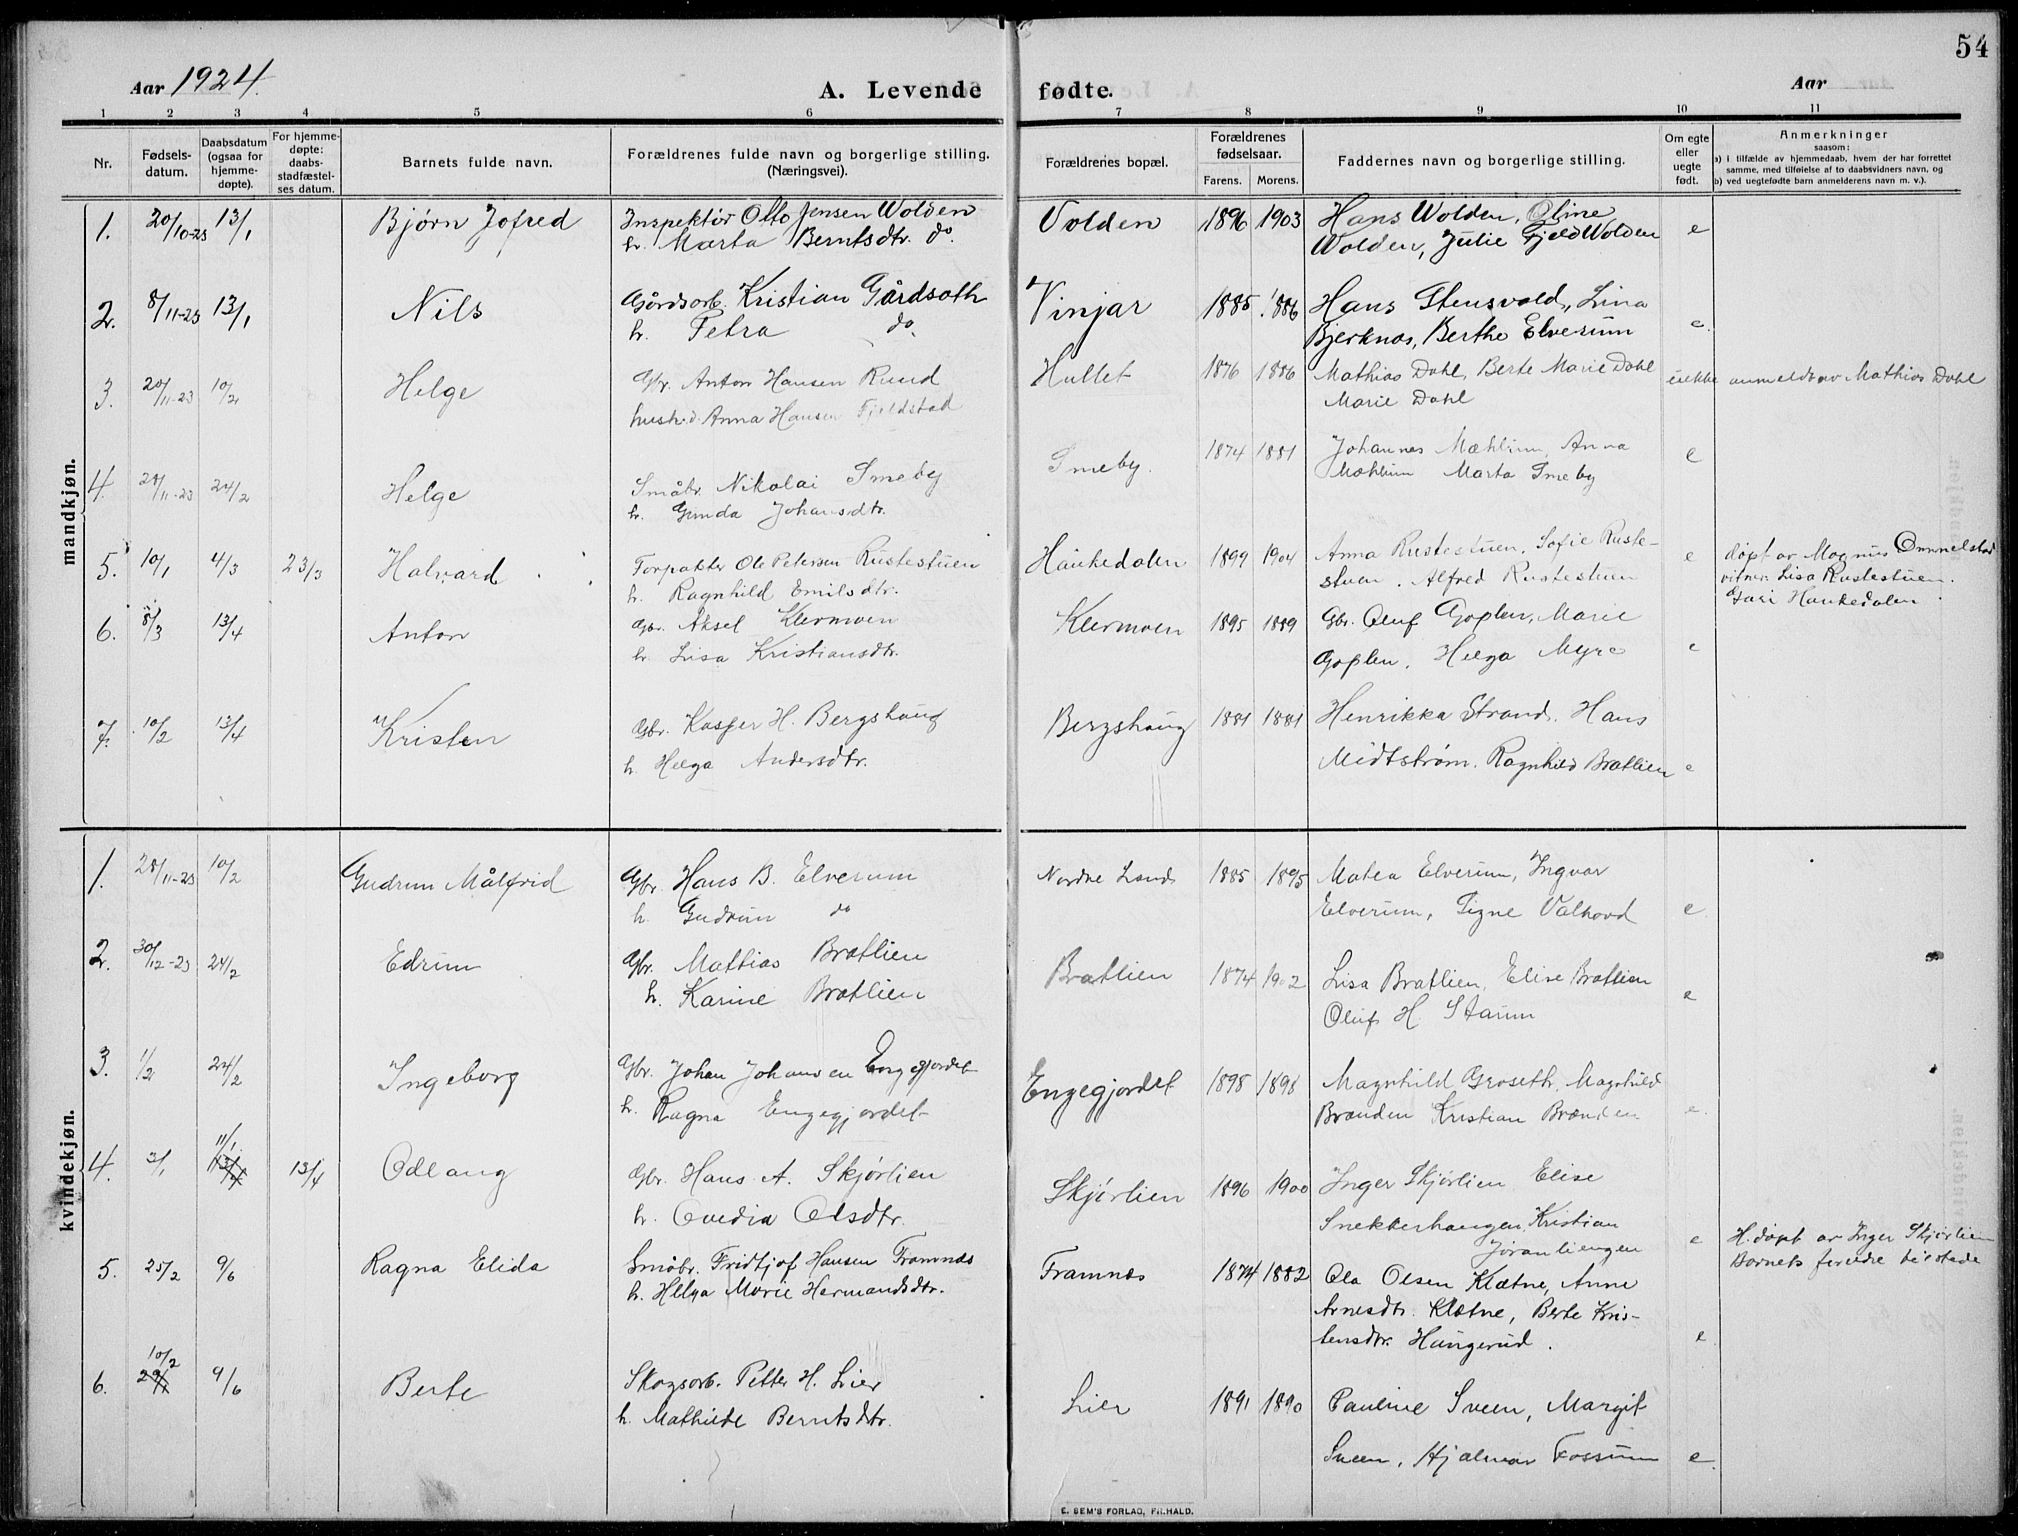 54
Aar 1924.
A. Levende fødte.
Aar
1 2 3 4 5 6 7 8 9 10 11
Nr.
Fødsels-
datum.
Daabsdatum
(ogsaa for
hjemme-
døpte).
For hjemme-
døpte:
daabs-
stadfæstel-
ses datum.
Barnets fulde navn.
Forældrenes fulde navn og borgerlige stilling.
(Næringsvei).
Forældrenes bopæl.
Forældrenes
fødselsaar.
Farens. Morens.
Faddernes navn og borgerlige stilling.
Om egte
eller
uegte
født.
Anmerkninger
saasom:
a) i tilfælde av hjemmedaab, hvem der har forrettet
samme, med tilføielse af to daabsvidners navn, og
b) ved uegtefødte barn anmelderens navn m. v.).
mandkjøn.
1. 20/10-23 13/1 Bjørn Jofred Inspektør Otto Jensen Wolden Volden 1896 1903 Hans Wolden, Oline
h. Marta Berntsdtr. do. Wolden, Julie Fjeld Wolden e
2. 8/11-23 13/1 Nils Gårdsarb. Kristian Gårdsoth Vinjar 1885 1886 Hans Stensvold, Lina
h. Petra do. Bjerknes, Berthe Elverum e.
3. 20/11-23 10/2 Helge Gbr. Anton Hansen Ruud Hullet 1876 1886 Mathias Dahl, Berte Marie Dahl uekte anmeldt av Mathias Dahl
hush.d. Anna Hansen Fjeldstad Marie Dahl
4. 28/11-23 24/2 Helge Småbr. Nikolai Smeby Smeby. 1874 1881 Johannes Mæhlum, Anna e
h. Gunda Johansdtr. Mæhlum Marta Smeby
5. 10/1 4/3 23/3 Halvard Forpakter Ole Petersen Rustestuen Haukedalen 1899 1904 Anna Rustestuen, Sofie Ruste- e døpt av Magnus
h. Ragnhild Emilsdtr. stuen. Alfred Rustestuen vitner. Lisa Rustestuen.
Guri Haukedalen.
6. 8/3 13/4 Anton Gbr. Aksel Klermoen Klermoen 1895 1889 Gbr. Oluf Goplen, Marie
h. Lisa Kristiansdtr. Goplen, Helga Myre e
7. 10/2 13/4 Kristen Gbr. Kasper H. Bergshaug Bergshaug 1881 1881 Henrikka Strand. Hans
h. Helga Andersdtr. Midtstrøm. Ragnhild Bratlien e
kvindekjøn.
1. 28/11-23 10/2 Gudrun Målfrid Gbr. Hans B. Elverum Nordre Land 1885 1895 Matea Elverum, Ingvar
h. Gudrun do Elverum, Signe Valhovd e.
2. 30/12-23 24/2 Edrun Gbr. Mathias Bratlien Bratlien 1874 1902 Lisa Bratlien, Elise Bratlien
h. Karine Bratlien Oluf H. Staum e
3. 1/2 24/2 Ingeborg Gbr. Johan Johansen Engegjordet Engegjordet 1898 1898 Magnhild Groseth, Magnhild
h. Ragna Engegjordet Brænden Kristian Brænden e.
4. 3/1 11/1 13/4 13/4 Odlaug Gbr. Hans A. Skjørlien Skjørlien 1896 1900 Inger Skjørlien Elise
h. Ovedia Olsdtr. Snekkerhaugen, Kristian
Jøranliengen e H.døpt av Inger Skjørlien
Barnets foreldre tilstede
5. 25/2 9/6 Ragna Elida Småbr. Fridtjof Hansen Framnæs Framnæs 1874 1882 Ola Olsen Klætne, Anne
h. Helga Marie Hermandsdtr. Arnesdtr. Klætne, Berte Kris-
tensdtr. Haugerud. e
6. 10/2 29/1 9/6 Berte Skogsarb. Petter H. Lier Lier 1891 1890 Pauline Sveen, Margit
h. Mathilde Berntsdtr. Sveen, Hjalmar Fossum e.
E. SEM'S FORLAG, FR.HALD.